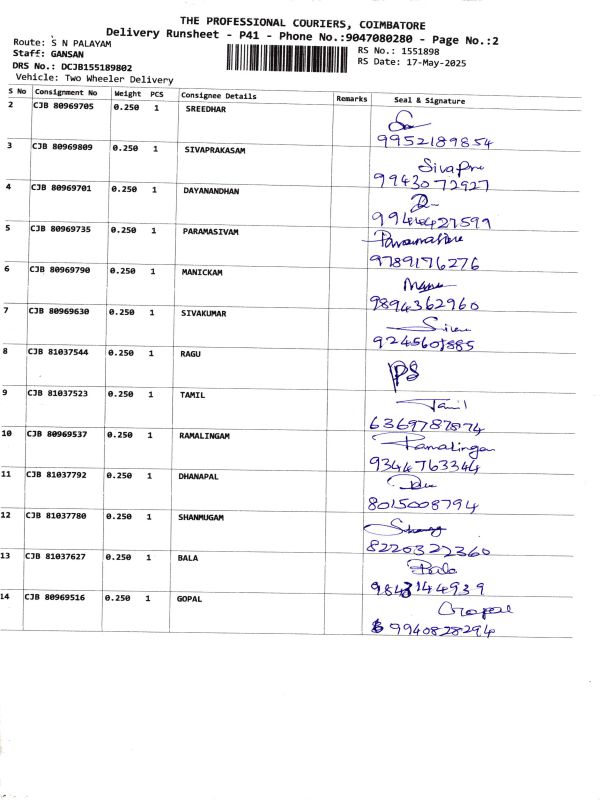 THE PROFESSIONAL COURIERS, COIMBATORE
Delivery Runsheet - P41 - Phone No.:9047080280 - Page No.:2
Route: S N PALAYAM
Staff: GANSAN
DRS No.: DCJB155189802
Vehicle: Two Wheeler Delivery
RS No.: 1551898
RS Date: 17-May-2025
S No Consignment No Weight PCS Consignee Details Remarks Seal & Signature
2 CJB 80969705 0.250 1 SREEDHAR
9952189854
3 CJB 80969809 0.250 1 SIVAPRAKASAM
9943072927
4 CJB 80969701 0.250 1 DAYANANDHAN
9944427599
5 CJB 80969735 0.250 1 PARAMASIVAM
9789176276
6 CJB 80969790 0.250 1 MANICKAM
9894362960
7 CJB 80969630 0.250 1 SIVAKUMAR
9245601885
8 CJB 81037544 0.250 1 RAGU
9 CJB 81037523 0.250 1 TAMIL
Tamil
6369787874
10 CJB 80969537 0.250 1 RAMALINGAM
Ramalingam
9344763344
11 CJB 81037792 0.250 1 DHANAPAL
8015008794
12 CJB 81037780 0.250 1 SHANMUGAM
8220322360
13 CJB 81037627 0.250 1 BALA
Bala
9843144939
14 CJB 80969516 0.250 1 GOPAL
9940828294